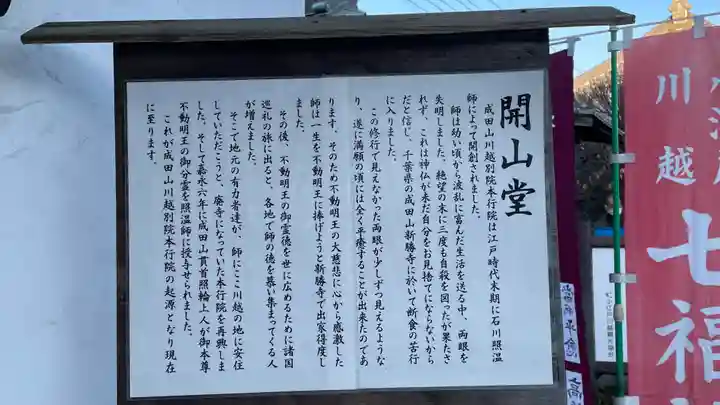 開山堂
成田山川越別院本行院は江戸時代末期に石川照温
師によって開創されました。
師は幼い頃から波乱に富んだ生活を送る中、両眼を
失明しました。絶望の末に三度も自殺を図ったが果たさ
れず、これは神仏が未だ自分をお見捨てにならないから
だと信じ、千葉県の成田山新勝寺に於いて断食の苦行
に入りました。
この修行で見えなかった両眼が少しずつ見えるような
り、遂に満願の頃には全く平癒することが出来たのであ
ります。そのため不動明王の大慈悲に心から感激した
師は一生を不動明王に捧げようと新勝寺で出家得度し
ました。
その後、不動明王の御霊徳を世に広めるために諸国
巡礼の旅に出ると、各地で師の徳を慕い集まってくる人
が増えました。
そこで地元の有力者達が、師にここ川越の地に安住
していただこうと、廃寺になっていた本行院を再興しま
した。そして嘉永六年に成田山貫首照輪上人が御本尊
不動明王の御分霊を照温師に授与せられました。
これが成田山川越別院本行院の起源となり現在
に至ります。
川越
七福